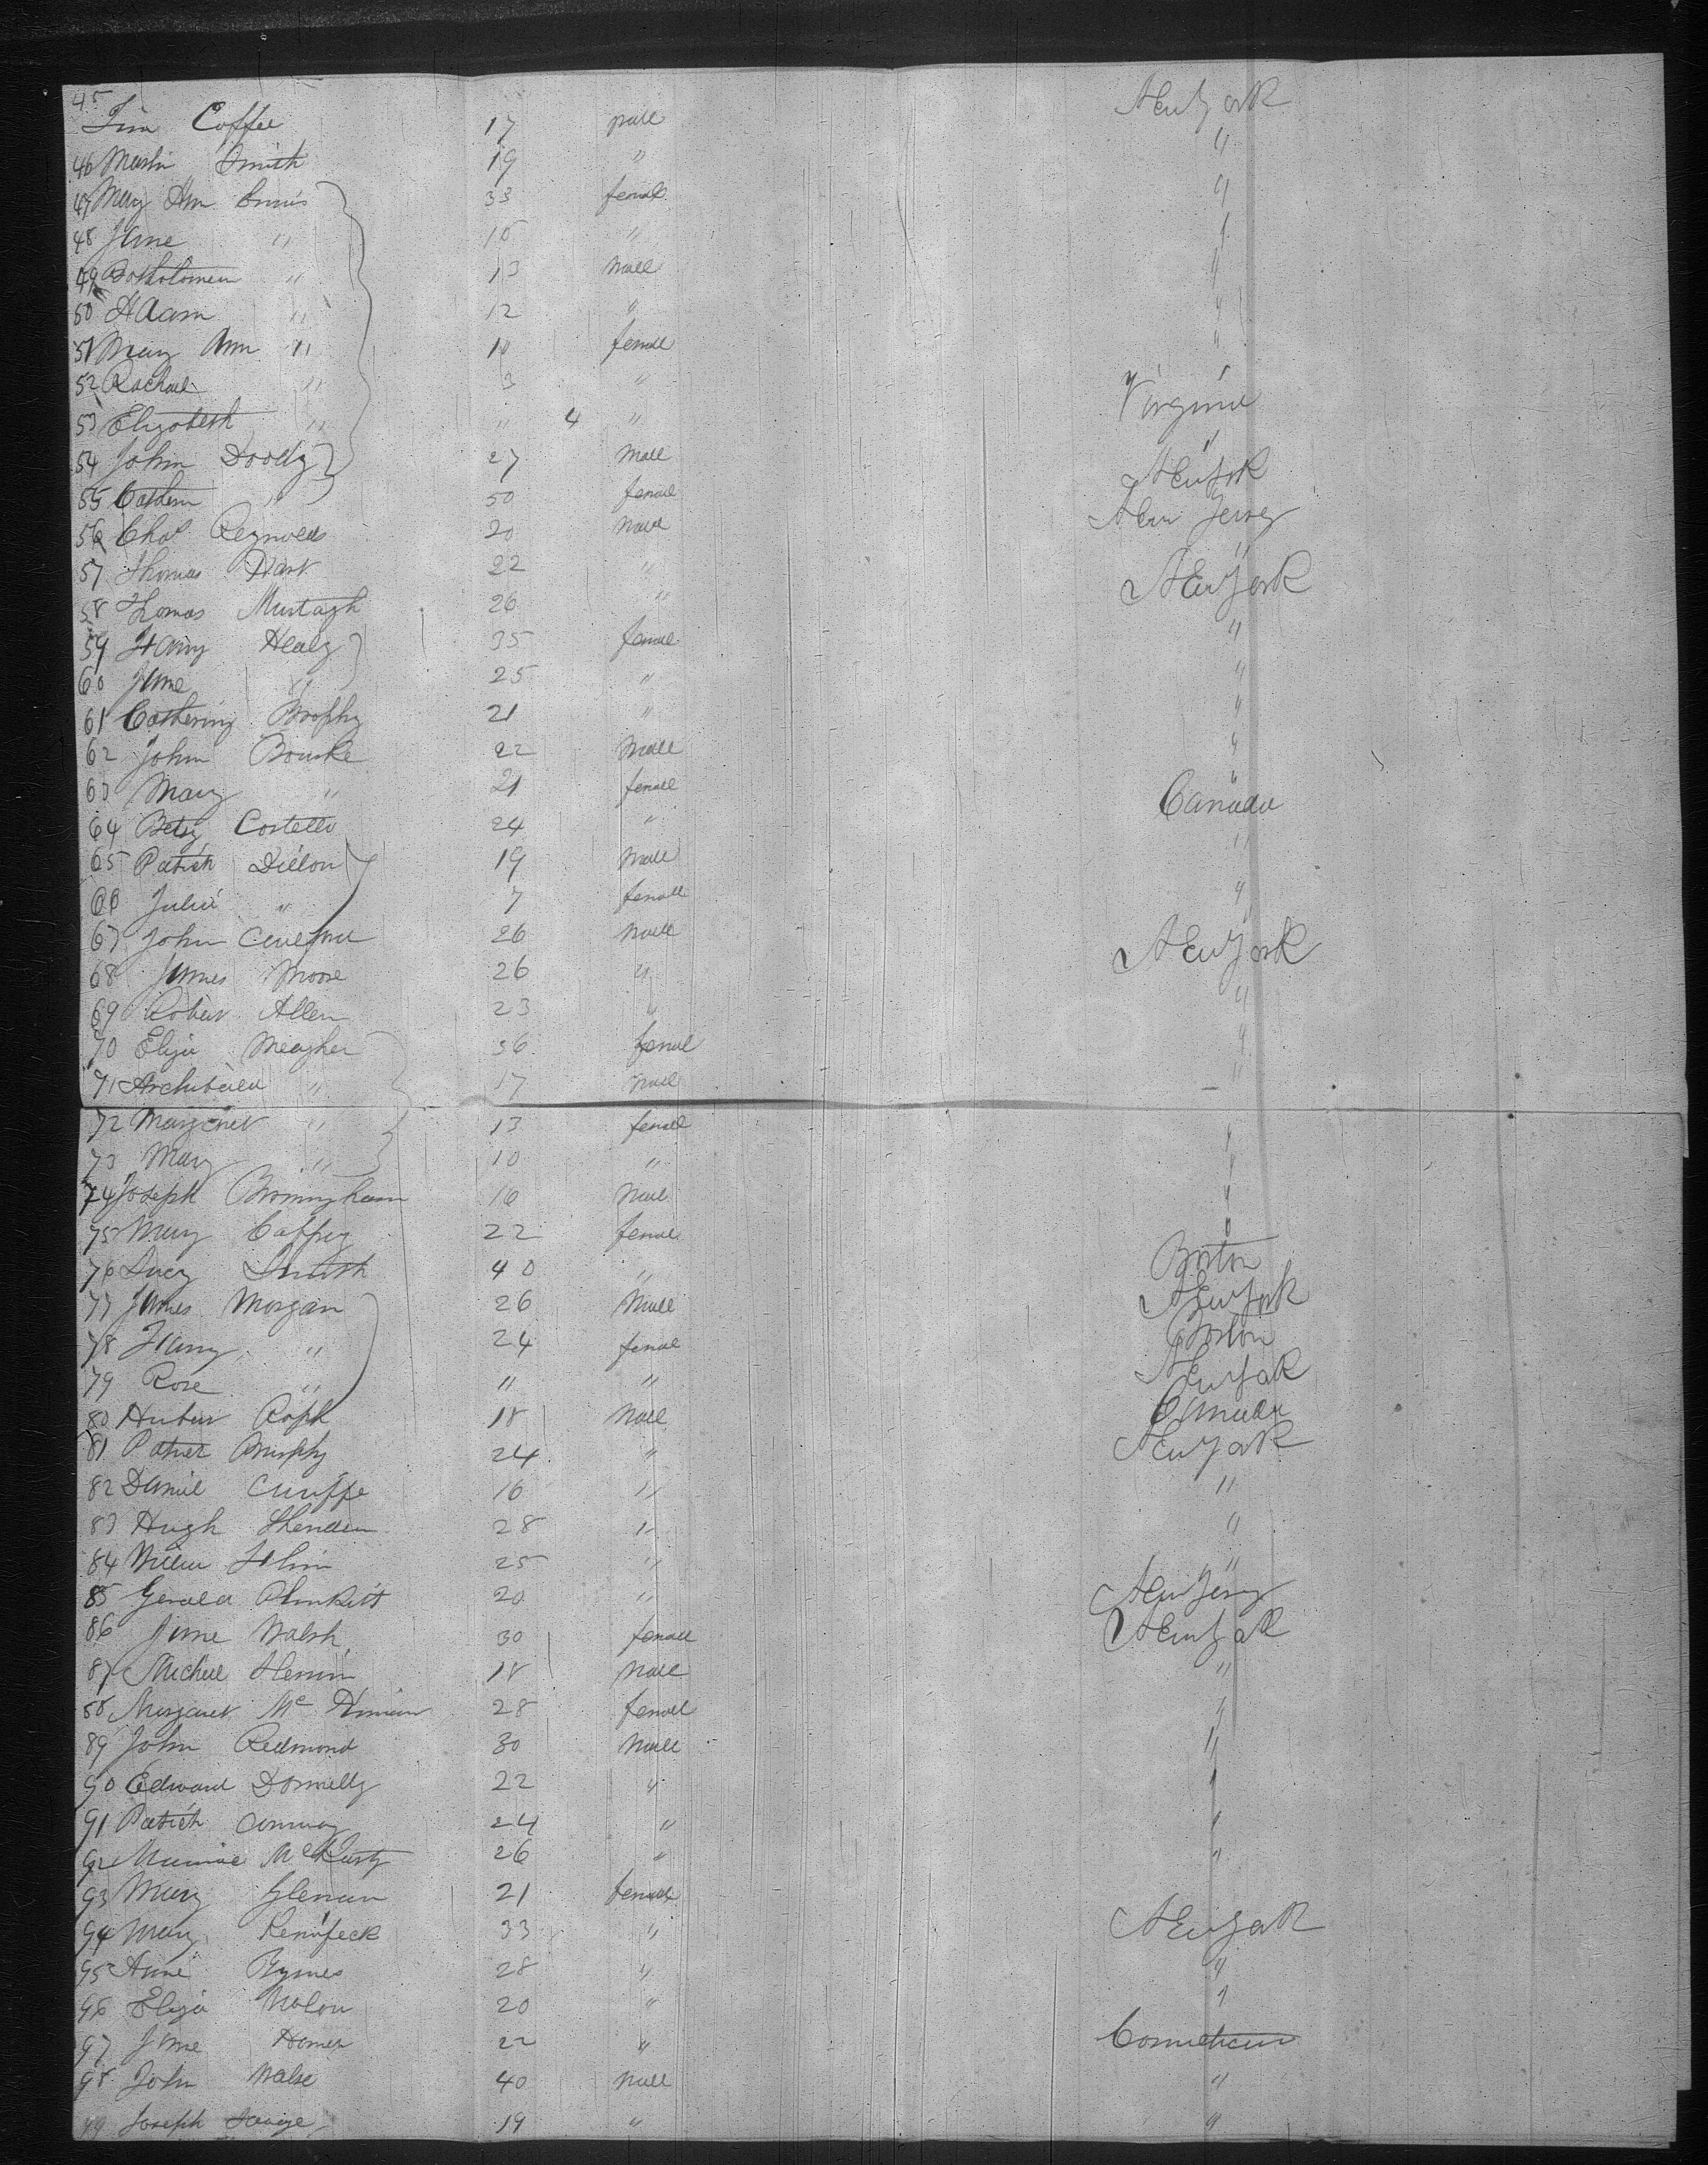 45 Tim Coffee 17 male New York
46 Martin Smith 19 " "
47 Mary Ann Ennis 33 female "
48 Jane " 15 " "
49 Bartholomew " 13 Male "
50 Adam " 12 " "
51 Mary Ann " 10 female "
52 Rachael " 3 " "
53 Elizabeth " " 4 " Virginia
54 John Doody 27 Male "
55 Cathern " 50 female New York
56 Chas Reynolds 20 Male New Jersey
57 Thomas Hart 22 " "
58 Thomas Murtagh 26 " New York
59 Fanny Healy 35 female "
60 Jane " 25 " "
61 Catherine Brophy 21 " "
62 John Bourke 22 Male "
63 Mary " 21 female "
64 Betsy Costello 24 " Canada
65 Patrick Dillon 19 Male "
66 Julia " 7 female "
67 John 26 Male New York
68 James Moore 26 "
69 Robert Allen 23 " "
70 Eliza Meagher 36 female "
71 Archibald " 17 Male "
72 Margaret " 13 female "
73 Mary " 10 " "
74 Joseph Bromingham 16 Male "
75 Mary Caffrey 22 female "
76 Lucy Smith 40 " Boston
77 James Morgan 26 Male New York
78 Fanny " 24 female Boston
79 Rose " " " New York
80 Hubert 18 Male Canada
81 Patrick Murphy 24 " New York
82 Daniel 16 " "
83 Hugh 28 " "
84 25 " "
85 Gerald Plunkett 20 " New Jersey
86 Jane Walsh 30 female New York
87 Michael 18 Male "
88 Margaret Mc 28 female "
89 John Redmond 30 Male "
90 Edward Donnelly 22 " "
91 Patrick Conway 24 " "
92 26 " "
93 Mary Glenan 21 female
94 Mary Kennifeck 33 " New York
95 Anne Byrnes 28 " "
96 Eliza Nolan 20 " "
97 Jane 22 " Conneticut
98 John Walse 40 Male "
99 Joseph Savage 19 " "